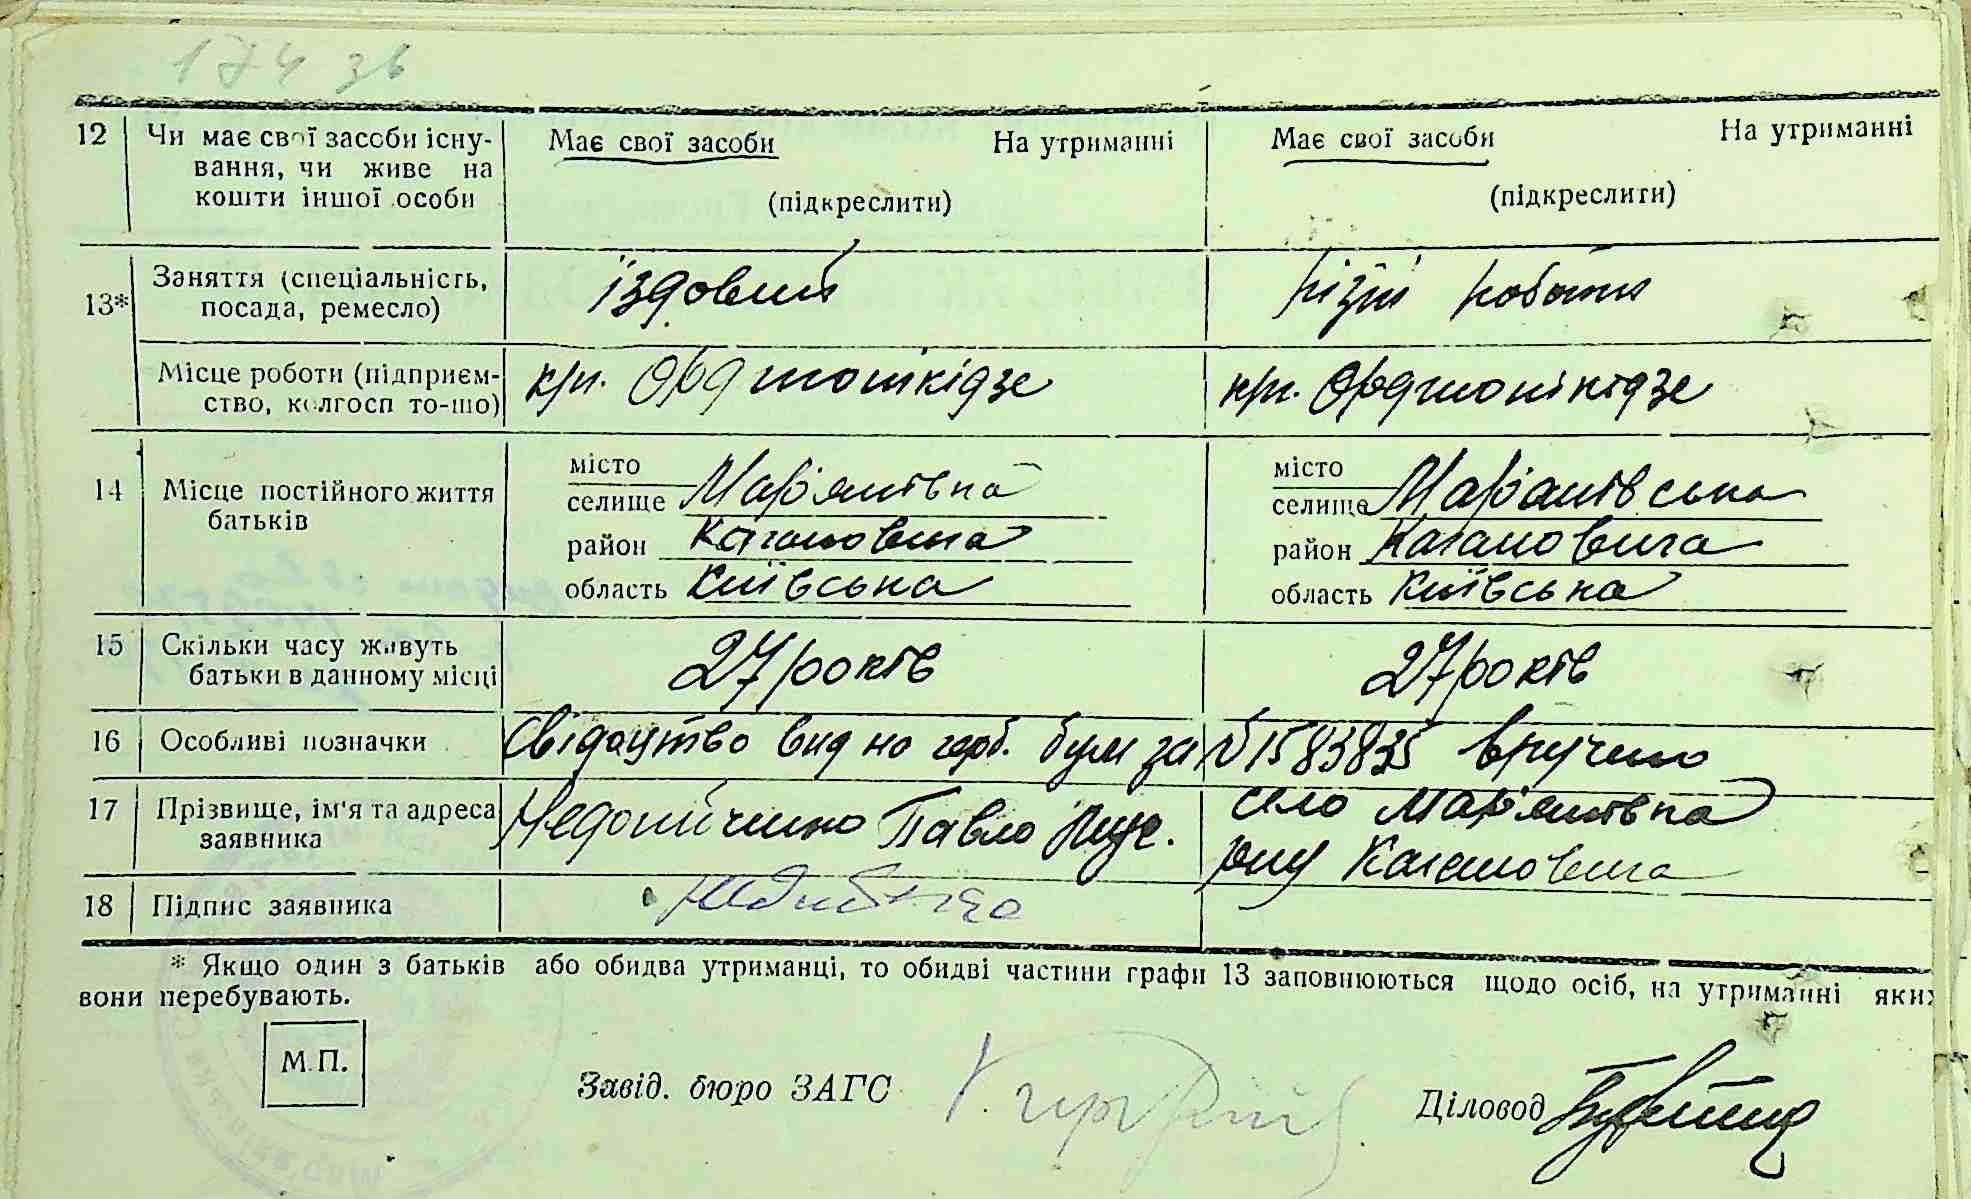 174 зв
12 Чи має свої засоби існу- Має свої засоби На утриманні Має свої засоби На утриманні
вання, чи живе на
кошти іншої особи (підкреслити) (підкреслити)
13* Заняття (спеціальність, їздовий різні роботи
посада, ремесло)
Місце роботи (підприєм- к/п. Орджонікідзе к/п. Орджонікідзе
ство, колгосп то-що)
14 Місце постійного життя місто місто
батьків селище Мар'янівка селище Мар'янівська
район Кагановича район Кагановича
область Київська область Київська
15 Скільки часу живуть 27 років 27 років
батьки в данному місці
16 Особливі позначки Свідоцтво вид на герб. бум за № 1583835 вручено
17 Прізвище, ім'я та адреса Павло село Мар'янівка
заявника р-ну Кагановича
18 Підпис заявника
* Якщо один з батьків або обидва утриманці, то обидві частини графи 13 заповнюються щодо осіб, на утриманні яких
вони перебувають.
М.П.
Завід. бюро ЗАГС Діловод